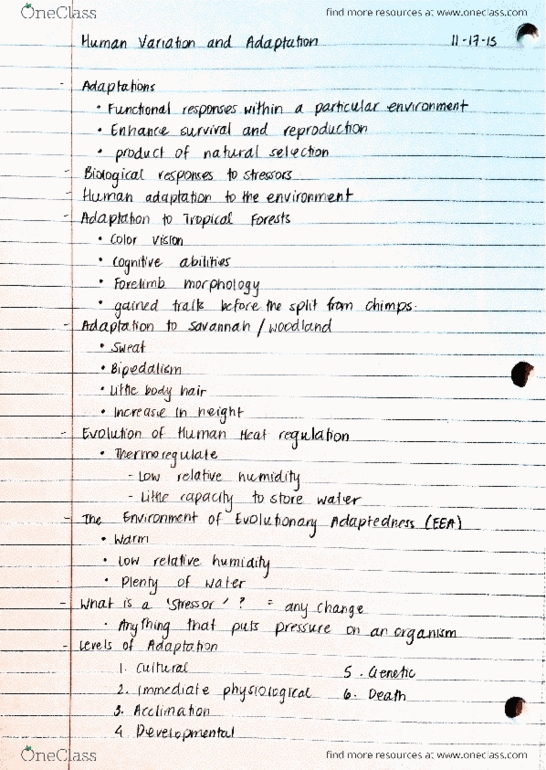 OneClass
find more resources at www.oneclass.com
Human Variation and Adaptation 11-17-15
- Adaptations
• Functional responses within a particular environment
• Enhance survival and reproduction
• product of natural selection
- Biological responses to stressors
- Human adaptation to the environment
- Adaptation to Tropical Forests
• Color vision
• Cognitive abilities
• Forelimb morphology
• gained traits before the split from chimps.
- Adaptation to Savannah / Woodland
• Sweat
• Bipedalism
• Little body hair
• Increase in height
- Evolution of Human Heat regulation
• Thermoregulate
- Low relative humidity
- Little capacity to store water
- The Environment of Evolutionary Adaptedness (EEA)
• Warm
• Low relative humidity
• Plenty of water
- What is a 'stressor'? = any change
• Anything that puts pressure on an organism
- Levels of Adaptation
1. Cultural
2. Immediate physiological
3. Acclimation
4. Developmental
5. Genetic
6. Death
OneClass
find more resources at www.oneclass.com